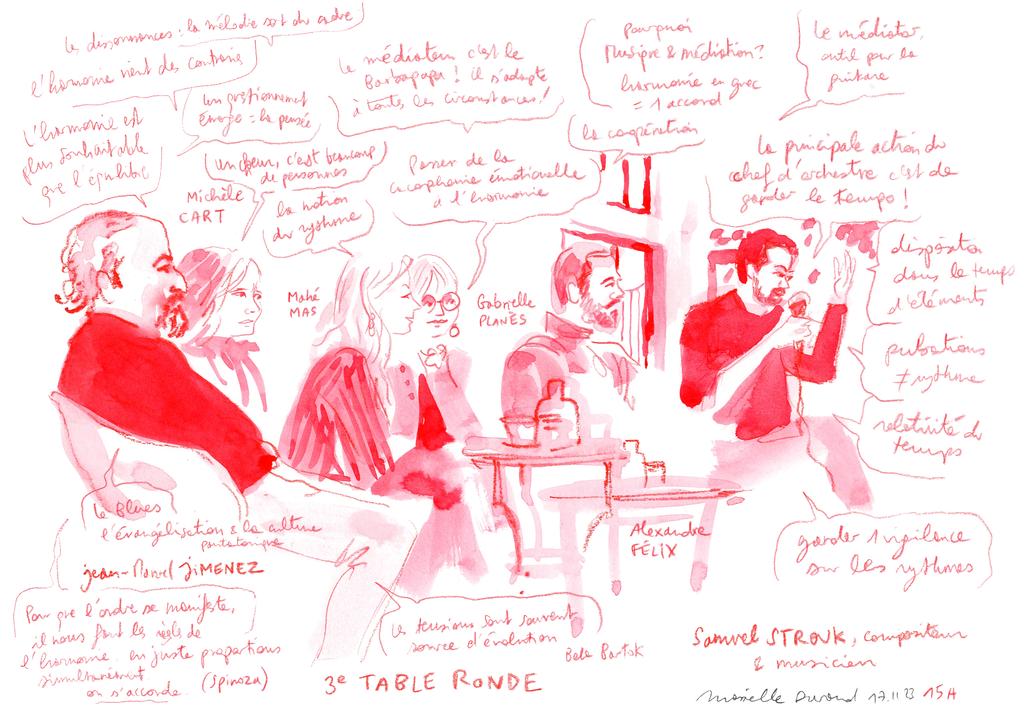 les dissonances : la mélodie sort du cadre
l'harmonie vient des contraires
un positionnement
émerge = la pensée
l'harmonie est
plus souhaitable
que l'équilibre
un chœur, c'est beaucoup
de personnes
Michèle
CART
la notion
du rythme
le médiateur c'est le
Barbapapa ! il s'adapte
à toutes les circonstances !
Passer de la
cacophonie émotionnelle
à l'harmonie
Pourquoi
Musique & médiation ?
harmonie en grec
= 1 accord
la coopération
le médiator,
outil pour la
guitare
la principale action du
chef d'orchestre c'est de
garder le tempo !
disposition
dans le temps
d'éléments
pulsations
≠ rythme
relativité du
temps
garder 1 vigilance
sur les rythmes
Mahé
MAS
Gabrielle
PLANÈS
Alexandre
FÉLIX
le Blues
l'évangélisation & la culture
pentatonique
Jean-Marcel JIMENEZ
Pour que l'ordre se manifeste,
il nous faut les règles de
l'harmonie. en juste proportions
simultanément
on s'accorde. (Spinoza)
les tensions sont souvent
source d'évolution
Bela Bartok
3e TABLE RONDE
Samuel STROUK, compositeur
& musicien
Marielle Durand 17.11.23 15H